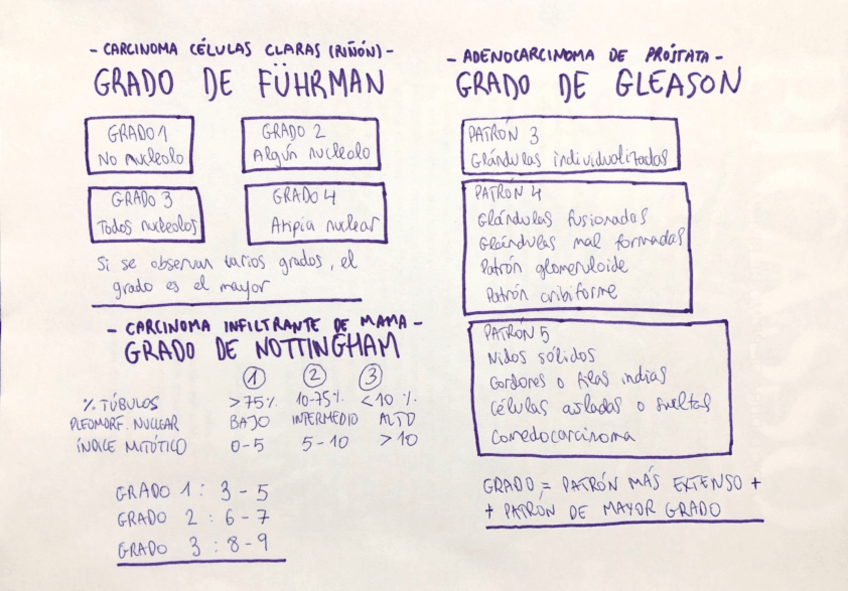 - CARCINOMA CÉLULAS CLARAS (RIÑÓN) -
GRADO DE FÜHRMAN
GRADO 1
No nucleolo
GRADO 2
Algún nucleolo
GRADO 3
Todos nucleolos
GRADO 4
Atipia nuclear
Si se observan varios grados, el
grado es el mayor
- CARCINOMA INFILTRANTE DE MAMA -
GRADO DE NOTTINGHAM
1 2 3
% TÚBULOS >75% 10-75% <10%
PLEOMORF. NUCLEAR BAJO INTERMEDIO ALTO
ÍNDICE MITÓTICO 0-5 5-10 >10
GRADO 1: 3-5
GRADO 2: 6-7
GRADO 3: 8-9
- ADENOCARCINOMA DE PRÓSTATA -
GRADO DE GLEASON
PATRÓN 3
Glándulas individualizadas
PATRÓN 4
Glándulas fusionadas
Glándulas mal formadas
Patrón glomeruloide
Patrón cribiforme
PATRÓN 5
Nidos sólidos
Cordones o filas indias
Células aisladas o sueltas
Comedocarcinoma
GRADO = PATRÓN MÁS EXTENSO +
+ PATRÓN DE MAYOR GRADO